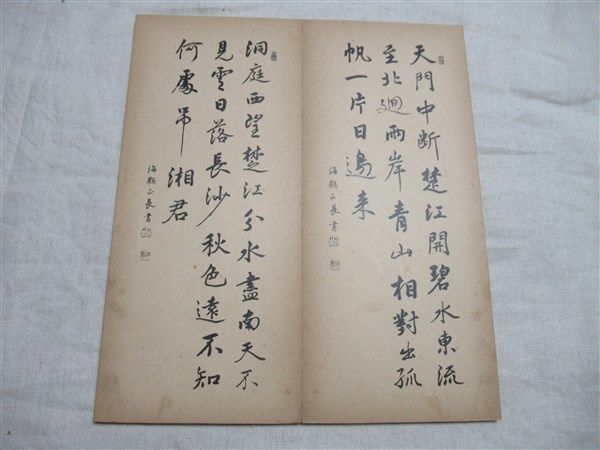 天門中断楚江開碧水東流
至北廻兩岸青山相對出孤
帆一片日邊来
海鶴正長書
洞庭西望楚江分水盡南天不
見雲日落長沙秋色遠不知
何處弔湘君
海鶴正長書